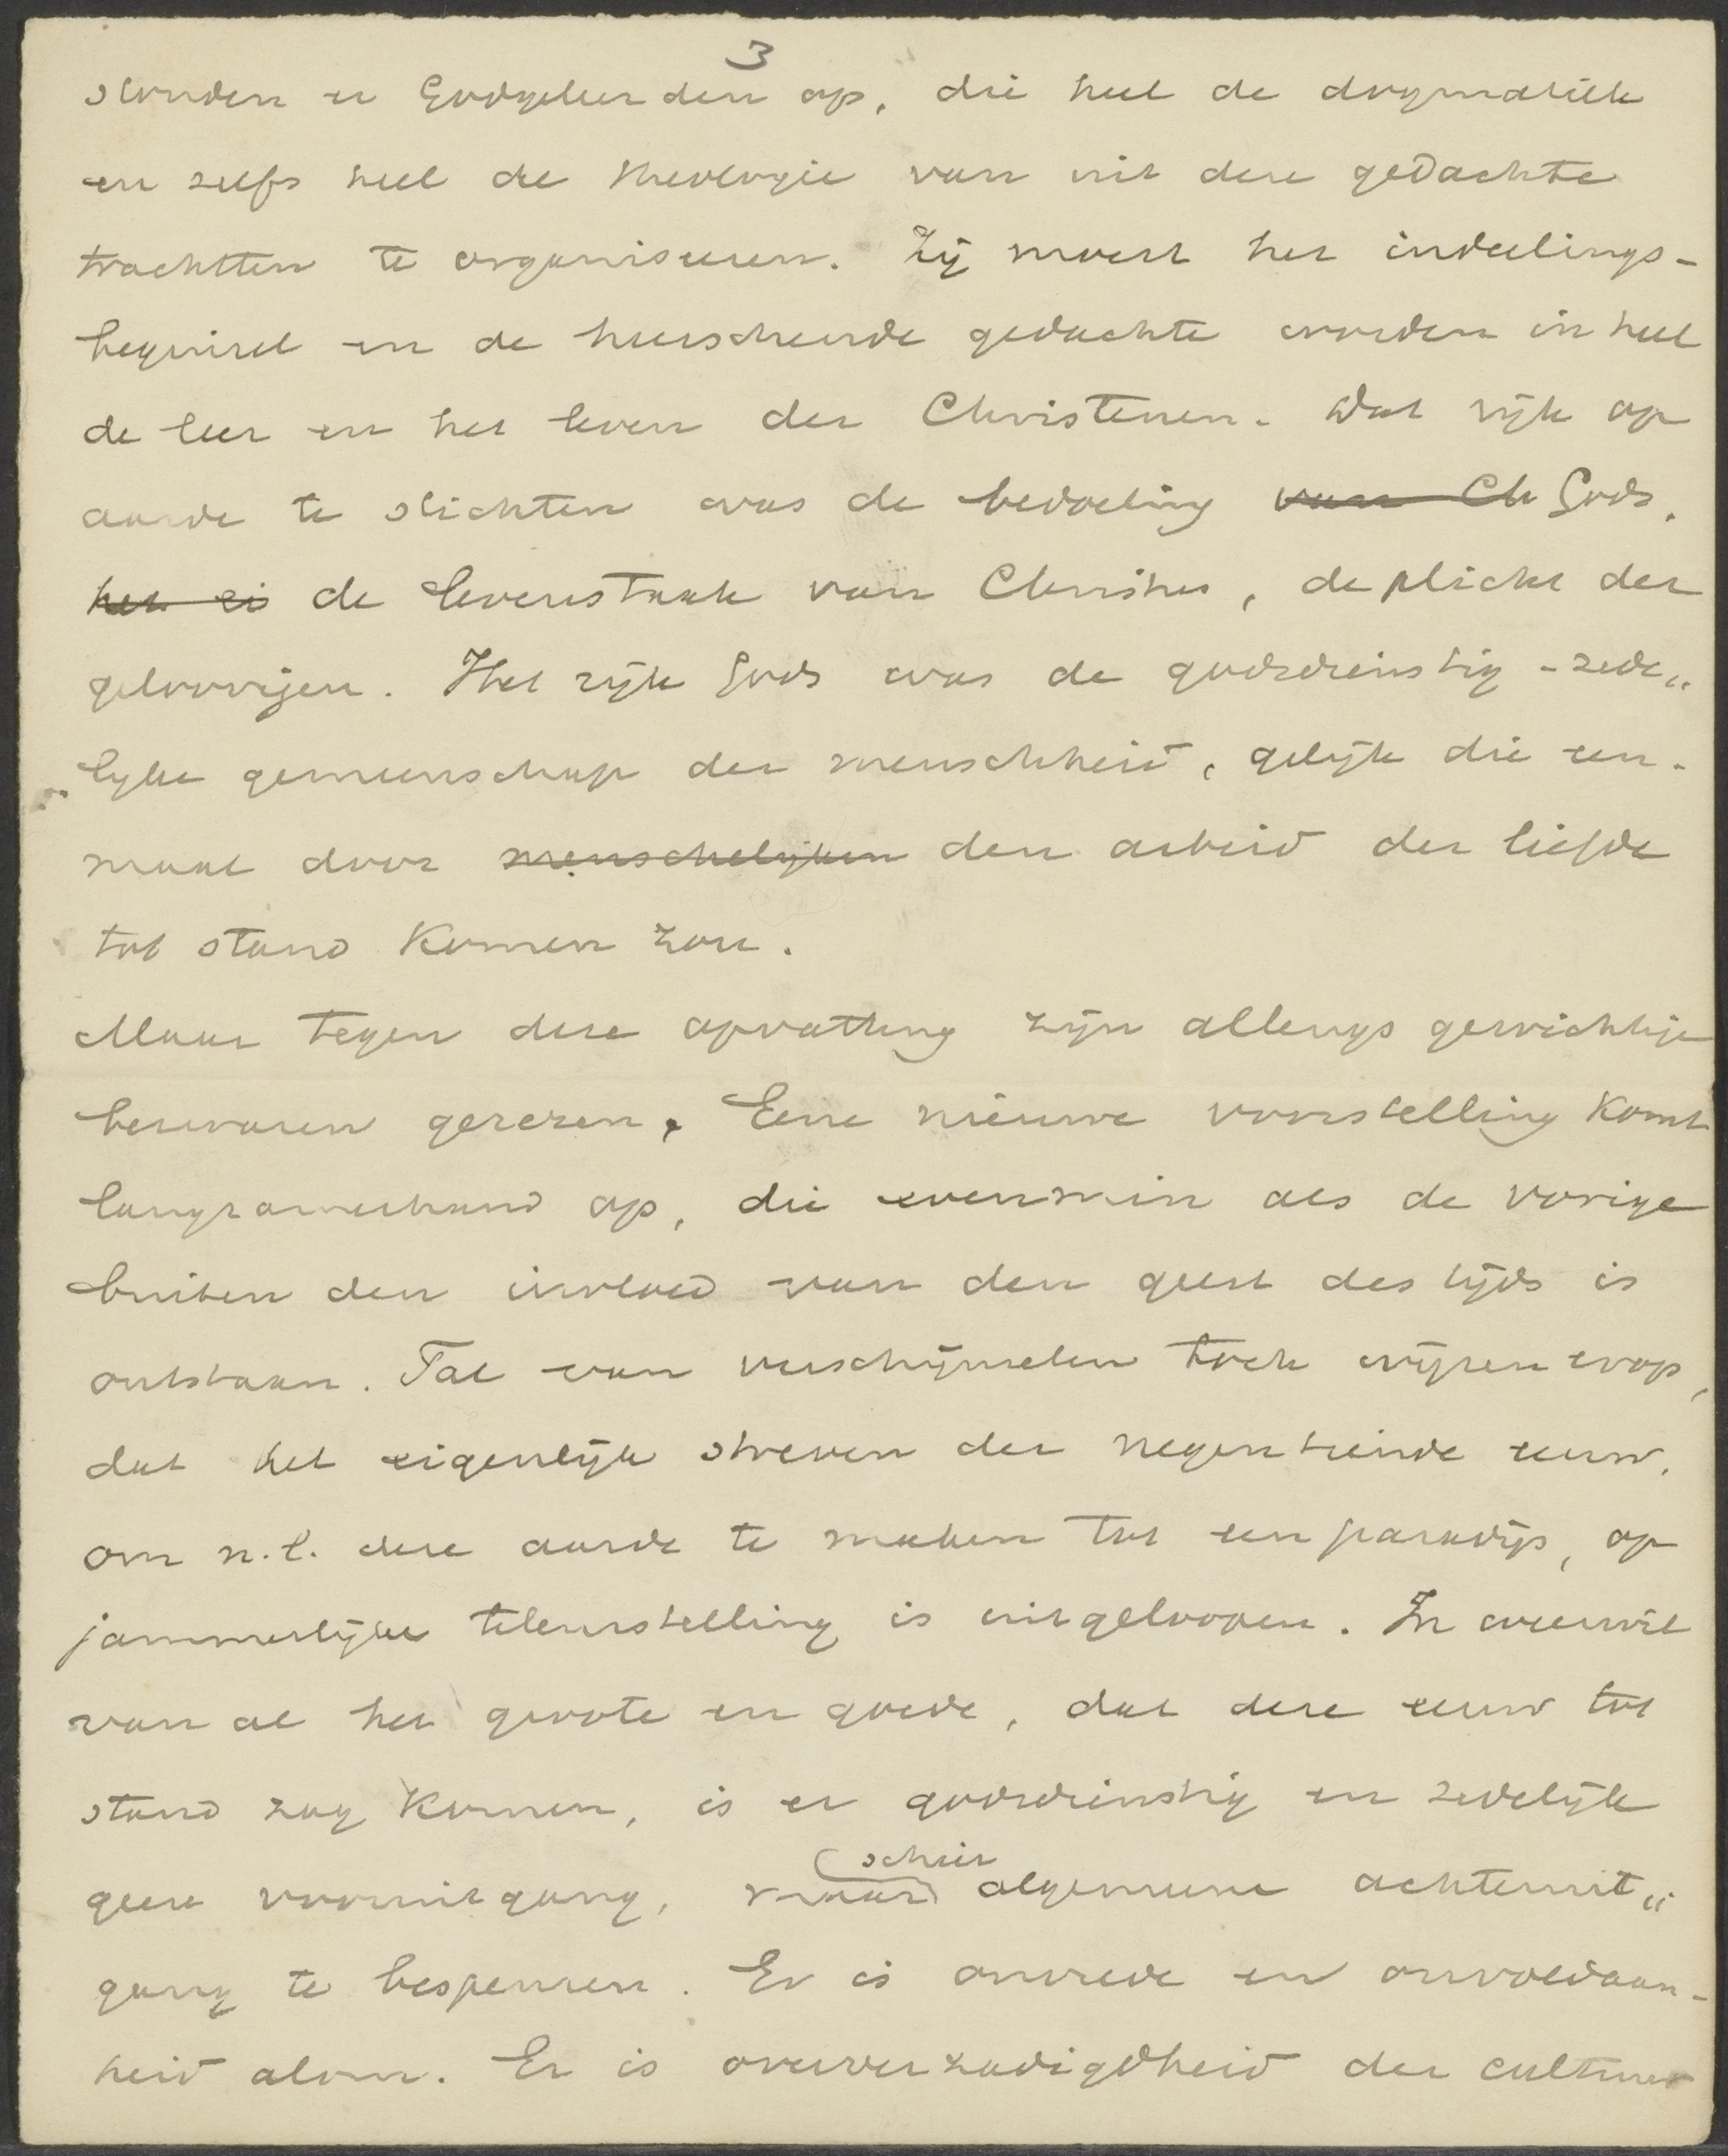 3
stonden er Godgeleerden op, die heel de dogmatiek
en zelfs heel de theologie van uit deze gedachte
trachtten te organiseeren. Zij moest het indeelings-
beginsel en de heerschende gedachte worden in heel
de leer en het leven der Christenen. Dat rijk op
aarde te stichten was de bedoeling van Ch Gods,
het ei de levenstaak van Christus, de plicht der
geloovigen. Het rijk Gods was de godsdienstig-zede„
„lijke gemeenschap der menschheid, gelijk die een-
maal door menschelijken den arbeid der liefde
tot stand komen zou.
Maar tegen deze opvatting zijn allengs gewichtige
bezwaren gerezen. Eene nieuwe voorstelling komt
langzamerhand op, die evenmin als de vorige
buiten den invloed van den geest des tijds is
ontstaan. Tal van verschijnselen toch wijzen erop,
dat het eigenlijk streven der negentiende eeuw,
om n.l. deze aarde te maken tot een paradijs, op
jammerlijke teleurstelling is uitgeloopen. In weerwil
van al het groote en goede, dat deze eeuw tot
stand zag komen, is er godsdienstig en zedelijk
schier
geen vooruitgang, maar algemeene achteruit„
gang te bespeuren. Er is onvrede en onvoldaan-
heid alom. Er is oververzadigdheid der cultuur